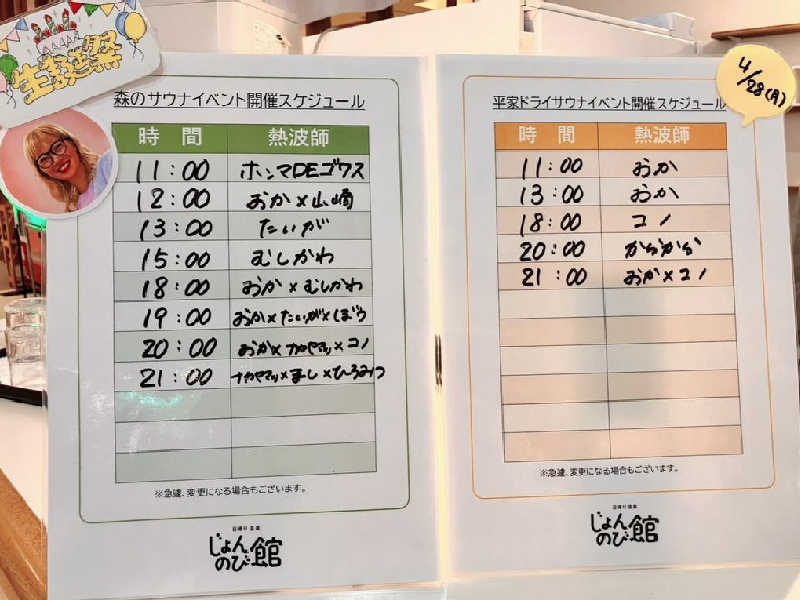 生誕祭
森のサウナイベント開催スケジュール
時間 熱波師
11:00 ホンマDEゴワス
12:00 おか×山崎
13:00 たいが
15:00 むしかわ
18:00 おか×むしかわ
19:00 おか×たいが×しぼう
20:00 おか×ナカヤマッ×コノ
21:00 ナカヤマッ×まし×ひろみつ
※急遽、変更になる場合もございます。
じょんのび館
4/28(月)
平家ドライサウナイベント開催スケジュール
時間 熱波師
11:00 おか
13:00 おか
18:00 コノ
20:00 かおかお
21:00 おか×コノ
※急遽、変更になる場合もございます。
じょんのび館